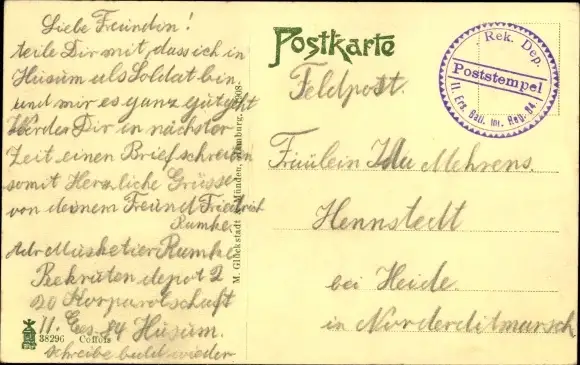 Liebe Freundin!
teile Dir mit, dass ich in
Husum als Soldat bin.
und mir es ganz gut geht
Werde Dir in nächster
Zeit einen Brief schreiben
somit Herzliche Grüsse
von deinem Freund Friedrich
Rumke
Adr Musketier Rumke
Rekruten depot 2
20 Korporolschaft
II. Ers. 84 Husum.
schreibe bald wieder
38296 Coffois
M. Glückstadt & Münden, Hamburg. 1908
Postkarte
Feldpost.
Rek. Dep.
Poststempel
II. Ers. Batl. Inf. Reg. 84.
Fräulein Ida Mehrens.
Hennstedt
bei Heide.
in Norderditmarsch